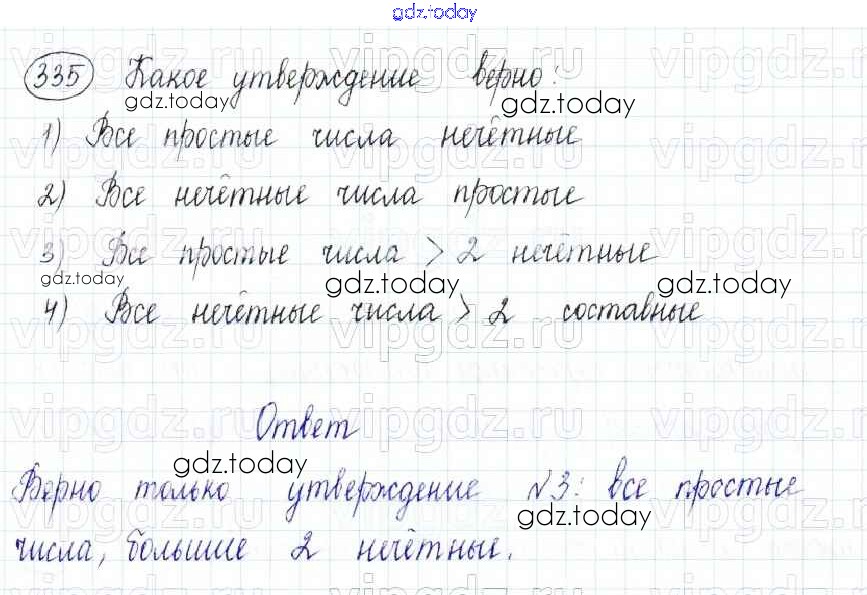 gdz.today
335 Какое утверждение верно:
gdz.today gdz.today
1) Все простые числа нечётные
2) Все нечётные числа простые
3) Все простые числа > 2 нечётные
gdz.today gdz.today gdz.today
4) Все нечётные числа > 2 составные
Ответ
gdz.today
Верно только утверждение №3: все простые
gdz.today
числа, большие 2 нечётные.